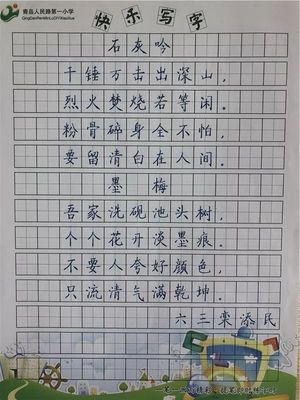 青岛人民路第一小学
QingDaoRenMinLuDiYiXiaoXue
快乐写字
石灰吟
千锤万击出深山，
烈火焚烧若等闲。
粉骨碎身全不怕，
要留清白在人间。
墨梅
吾家洗砚池头树，
个个花开淡墨痕。
不要人夸好颜色，
只流清气满乾坤。
六三栾添民